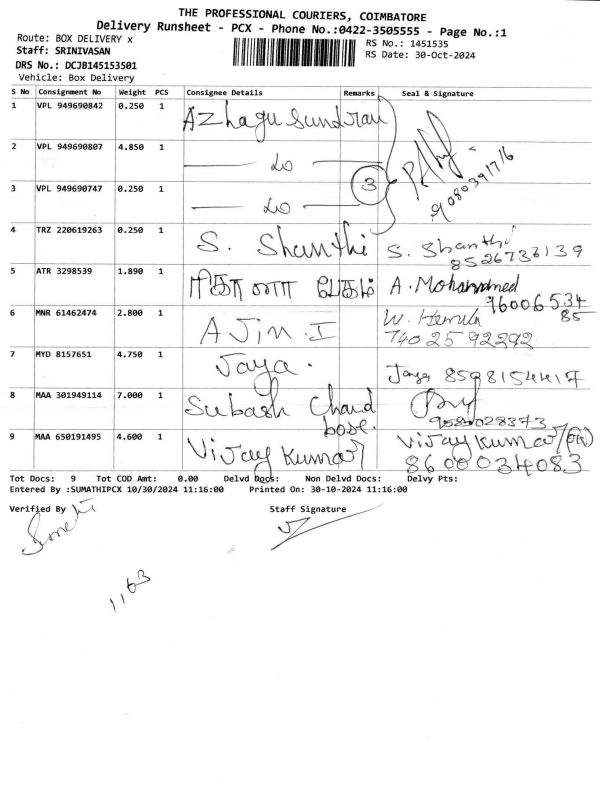 THE PROFESSIONAL COURIERS, COIMBATORE
Delivery Runsheet - PCX - Phone No.:0422-3505555 - Page No.:1
Route: BOX DELIVERY x
RS No.: 1451535
Staff: SRINIVASAN
RS Date: 30-Oct-2024
DRS No.: DCJB145153501
Vehicle: Box Delivery
S No Consignment No Weight PCS Consignee Details Remarks Seal & Signature
1 VPL 949690842 0.250 1 Azhagu Sundran
2 VPL 949690807 4.850 1
3
9080391716
3 VPL 949690747 0.250 1
4 TRZ 220619263 0.250 1 S. Shanthi S. Shanthi
8526736139
5 ATR 3298539 1.890 1 A. Mohammed
9600653485
6 MNR 61462474 2.800 1 AJin. I W.
7402592292
7 MYD 8157651 4.750 1 Jaya. Jaya 8598154417
8 MAA 301949114 7.000 1 Subash Chand
bose.
9080028373
9 MAA 650191495 4.600 1 Vijay Kumar Vijay Kumar
8600034083
Tot Docs: 9 Tot COD Amt: 0.00 Delvd Docs: Non Delvd Docs: Delvy Pts:
Entered By :SUMATHIPCX 10/30/2024 11:16:00 Printed On: 30-10-2024 11:16:00
Verified By Staff Signature
1163